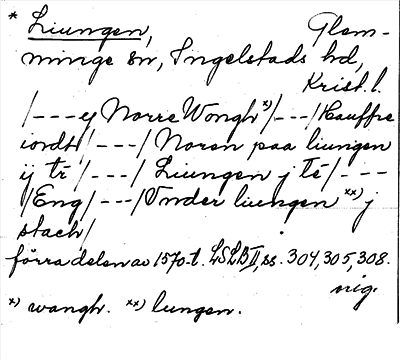 * Liungen, Glem-
minge sn, Ingelstads hd,
Krist. l.
/---ej Norre Wongh *)/---/Hauffre
iordt/---/Noren paa liungen
ij tr/---/Liungen j té/---
/Eng/---/Vnder liungen **) j
stach/
förra delen av 1570-t. LSLB II, ss. 304, 305, 308.
nig.
*) wangh. **) lungen.